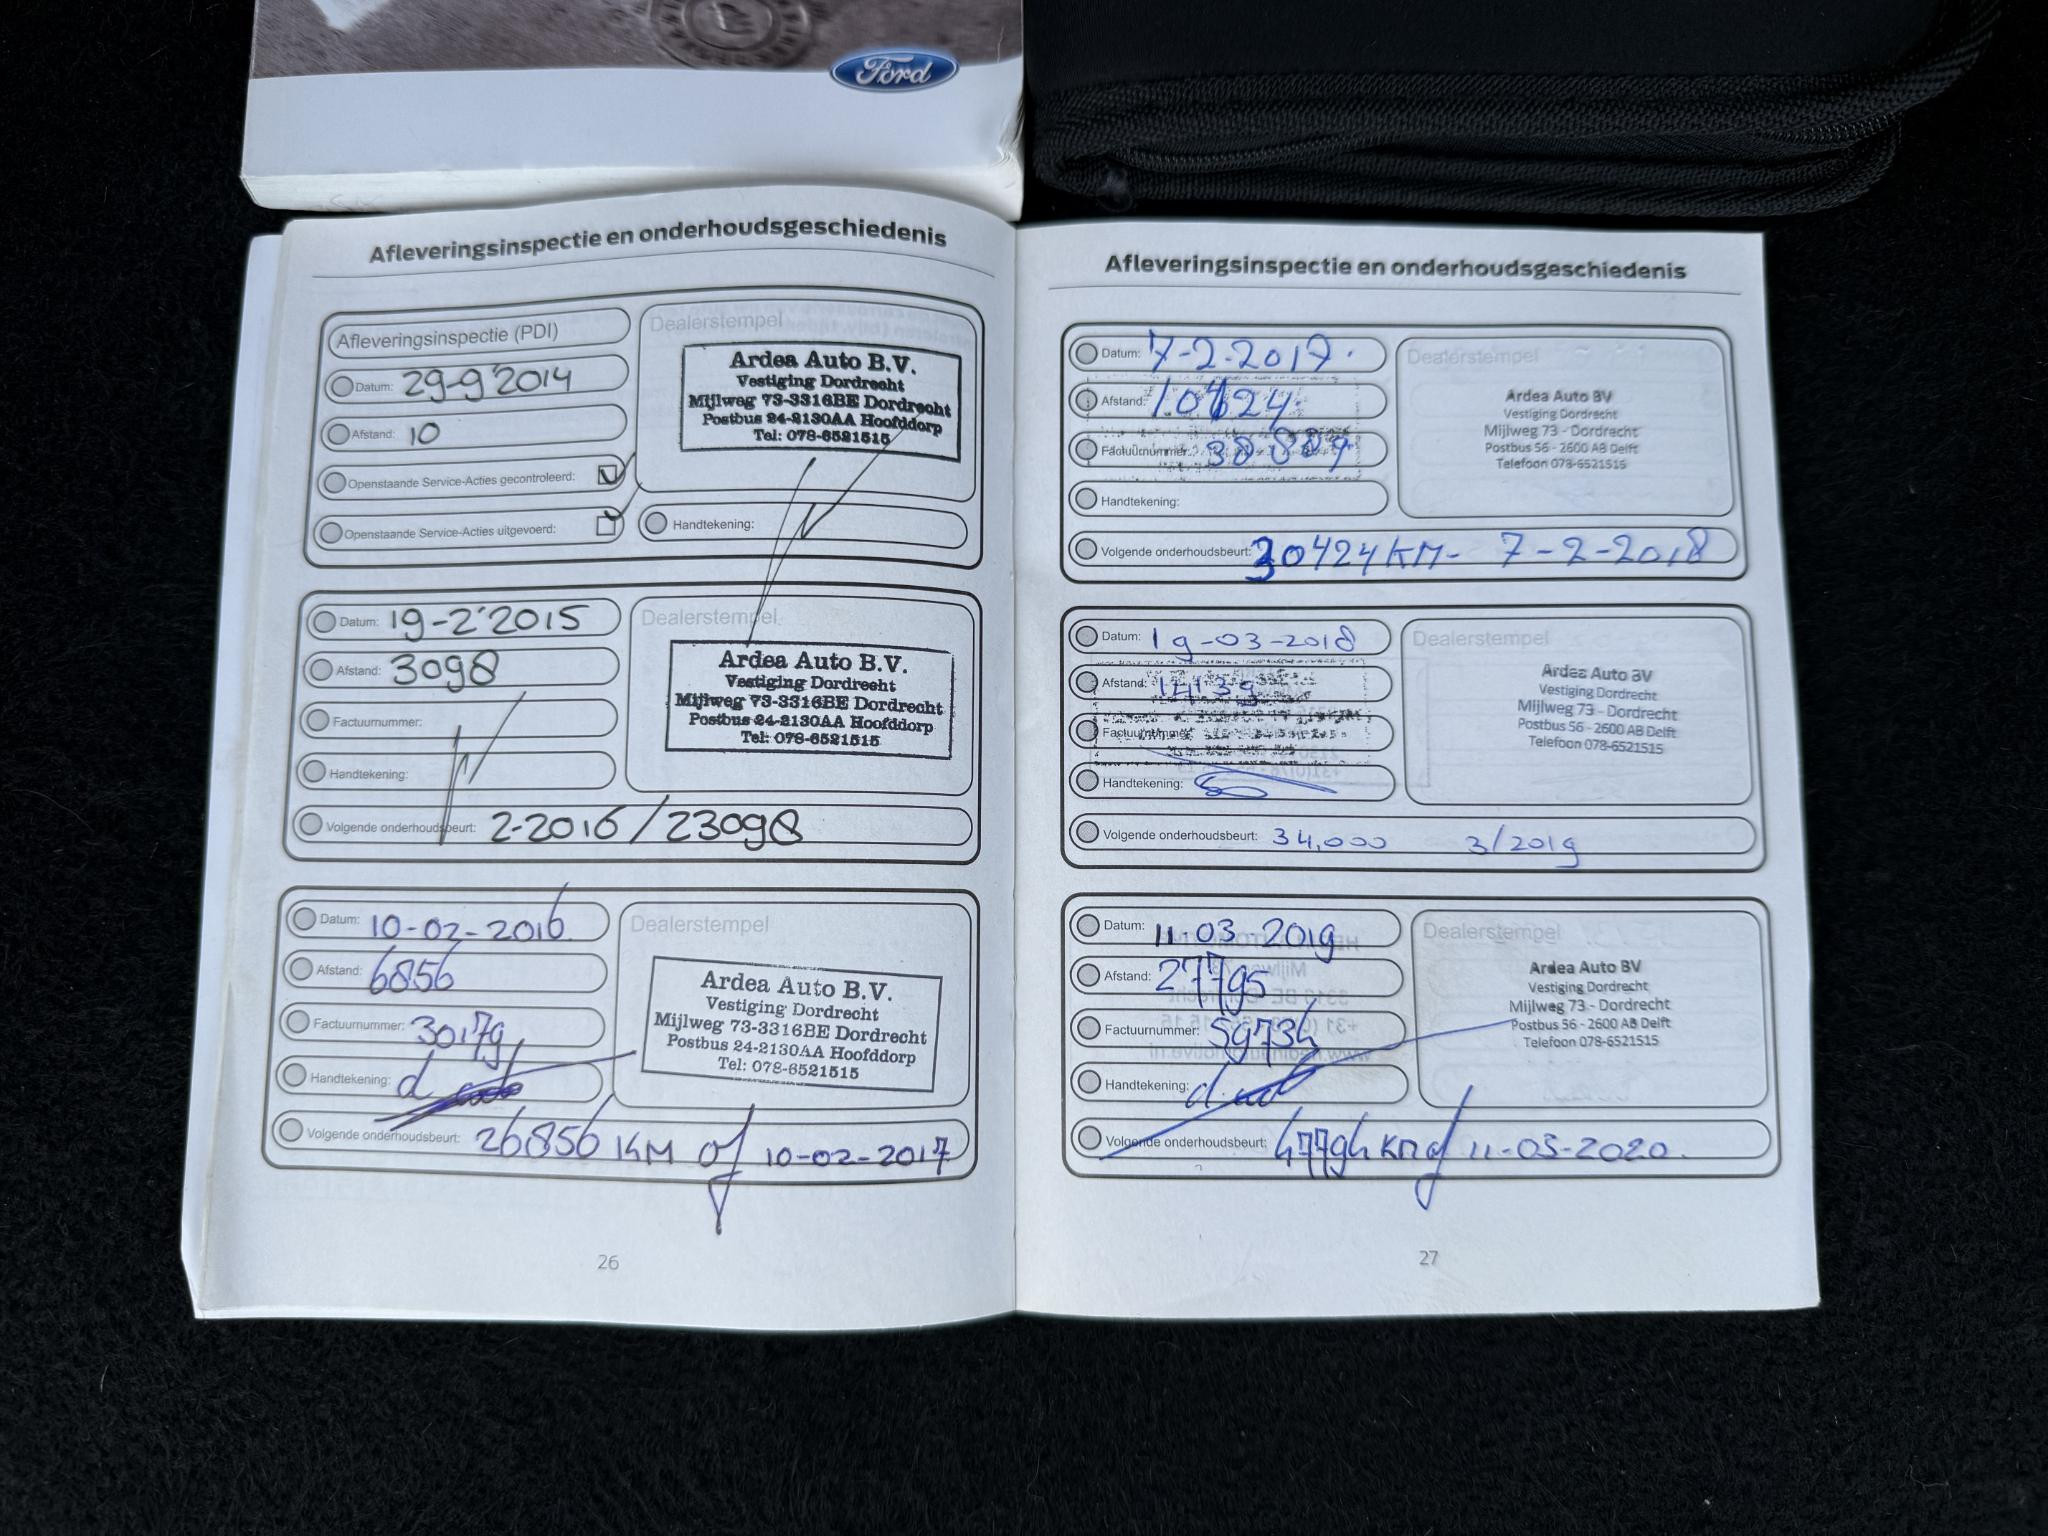 Ford
Afleveringsinspectie en onderhoudsgeschiedenis
Afleveringsinspectie (PDI)
Datum: 29-9'2014
Afstand: 10
Openstaande Service-Acties gecontroleerd:
Openstaande Service-Acties uitgevoerd:
Dealerstempel
Ardea Auto B.V.
Vestiging Dordrecht
Mijlweg 73-3316BE Dordrecht
Postbus 24-2130AA Hoofddorp
Tel: 078-6521515
Handtekening:
Datum: 19-2'2015
Afstand: 3098
Factuurnummer:
Handtekening:
Volgende onderhoudsbeurt: 2-2016/23098
Dealerstempel
Ardea Auto B.V.
Vestiging Dordrecht
Mijlweg 73-3316BE Dordrecht
Postbus 24-2130AA Hoofddorp
Tel: 078-6521515
Datum: 10-02-2016
Afstand: 6856
Factuurnummer: 30179
Handtekening:
Volgende onderhoudsbeurt: 26856 KM of 10-02-2017
Dealerstempel
Ardea Auto B.V.
Vestiging Dordrecht
Mijlweg 73-3316BE Dordrecht
Postbus 24-2130AA Hoofddorp
Tel: 078-6521515
26
Afleveringsinspectie en onderhoudsgeschiedenis
Datum: 7-2-2017.
Afstand: 10424.
Factuurnummer: 38889
Handtekening:
Volgende onderhoudsbeurt: 30424 KM- 7-2-2018
Dealerstempel
Ardea Auto BV
Vestiging Dordrecht
Mijlweg 73 - Dordrecht
Postbus 56 - 2600 AB Delft
Telefoon 078-6521515
Datum: 19-03-2018
Afstand: 14139
Factuurnummer:
Handtekening:
Volgende onderhoudsbeurt: 34,000 3/2019
Dealerstempel
Ardea Auto BV
Vestiging Dordrecht
Mijlweg 73 - Dordrecht
Postbus 56 - 2600 AB Delft
Telefoon 078-6521515
Datum: 11-03-2019
Afstand: 27795
Factuurnummer: 59734
Handtekening:
Volgende onderhoudsbeurt: 47794 KM of 11-03-2020.
Dealerstempel
Ardea Auto BV
Vestiging Dordrecht
Mijlweg 73 - Dordrecht
Postbus 56 - 2600 AB Delft
Telefoon 078-6521515
27